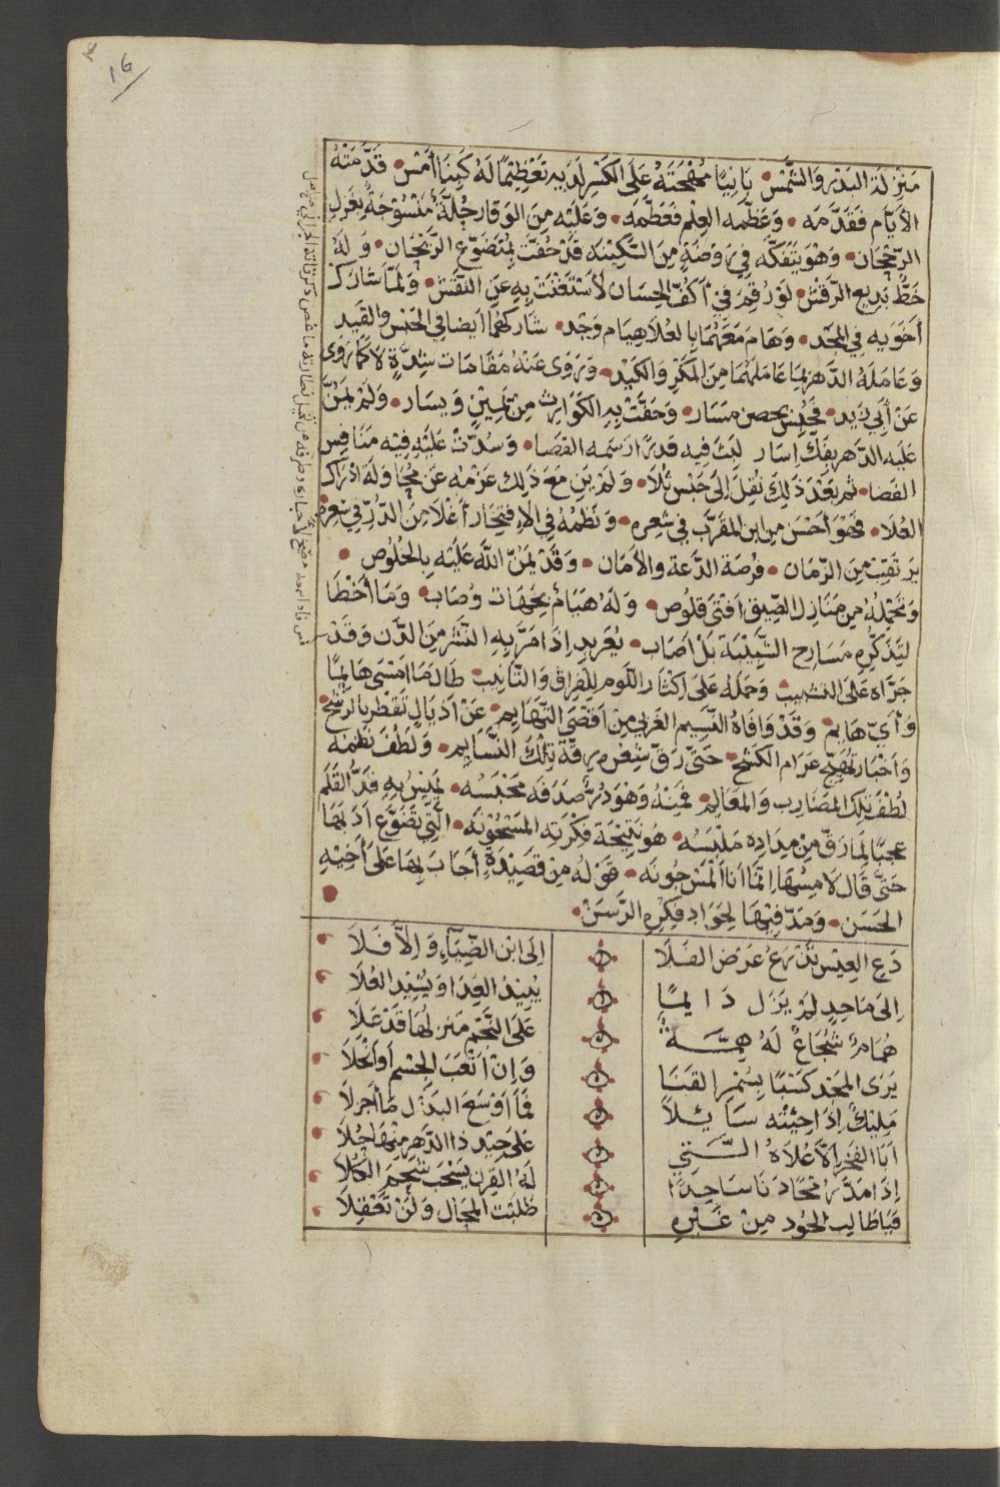 ١٦
منزلة البدر والشمس بانيا مهجته على الكسر لديه تعظيما له كبنا أمس قدمته
الأيام فقدمه وعظمه العلم فعظمه وعليه من الوقار حلة منسوجة بغزل
الرجحان وهو يتفكه في روضة من السكينة قد حفت بمتضوع الريحان وله
خط بديع الرقش لو رقم في أكف الحسان لاستغنت به عن النقش ولما شارك
أخويه في المجد وهام معهما بالعلا هيام وجد شاركهما أيضا في الحبس والقيد
وعامله الدهر بما عاملهما من المكر والكيد وتروى عنه مقامات شدة لا كما روى
عن أبي زيد فحبس بحصن مسار وحفت به الكوارث من يمين ويسار ولم يمن
عليه الدهر بفك إسار لبث فيه قدر ما رسمه القضا وسدت عليه فيه منافس
الفضا ثم بعد ذلك نقل إلى حبس ثلا ولم ين مع ذلك عزمه عن محاولة إدراك
العلا فهو أحسن من ابن المقرب في شعره ونظمه في الافتخار أغلا من الدر في سعره
يرتقب من الزمان فرصة الدعة والأمان وقد يمن الله عليه بالخلوص
وتحمله من منازل الضيق أفتى قلوص وله هيام بجهات وصاب وما أخطا
لتذكره مسارح الشبيبة بل أصاب يعربد إذا مر به النشر من الدن وقد
جراه على التشبيب وحمله على إكثار اللوم للفراق والتأنيب طالما أمسى هائما
وأي هائم وقد وافاه النسيم الغربي من أقصى التهايم عن أذيال تقطر بالرشح
وأخبار تهيج غرام الكشح حتى رق شعره برقة تلك النسايم ولطف نظمه
لطف تلك المضارب والمعالم فمنه وهو درة صدفه محبسه يميس به قد القلم
عجبا لما رق من مداده ملبسه هو نتيجة فكرته المسجونة التي تضوع أدبها
حتى قال لامسها إنما أنا المسجونه قوله من قصيدة أجاب بها على أخيه
الحسن ومد فيها لجواد فكره الرسن
دع العيس تذرع عرض الفلا إلى ابن الضياء وإلا فلا
إلى ماجد لم يزل دايما يبيد العدا ويشيد العلا
همام شجاع له همة على النجم منزلها قد علا
يرى المجد كسبا بسمر القنا وإن أتعب الجسم أو أنحلا
مليك إذا جئته سائلا فما أوسع البذل ما أجزلا
أبا الفخر الا علاه التي على جيد ذا الدهر منها حلا
إذا مد رمحا دنا ساجدا له القرن يسحب شحم الكلا
فيا طالب الجود من غيره طلبت المحال ولن تعقلا